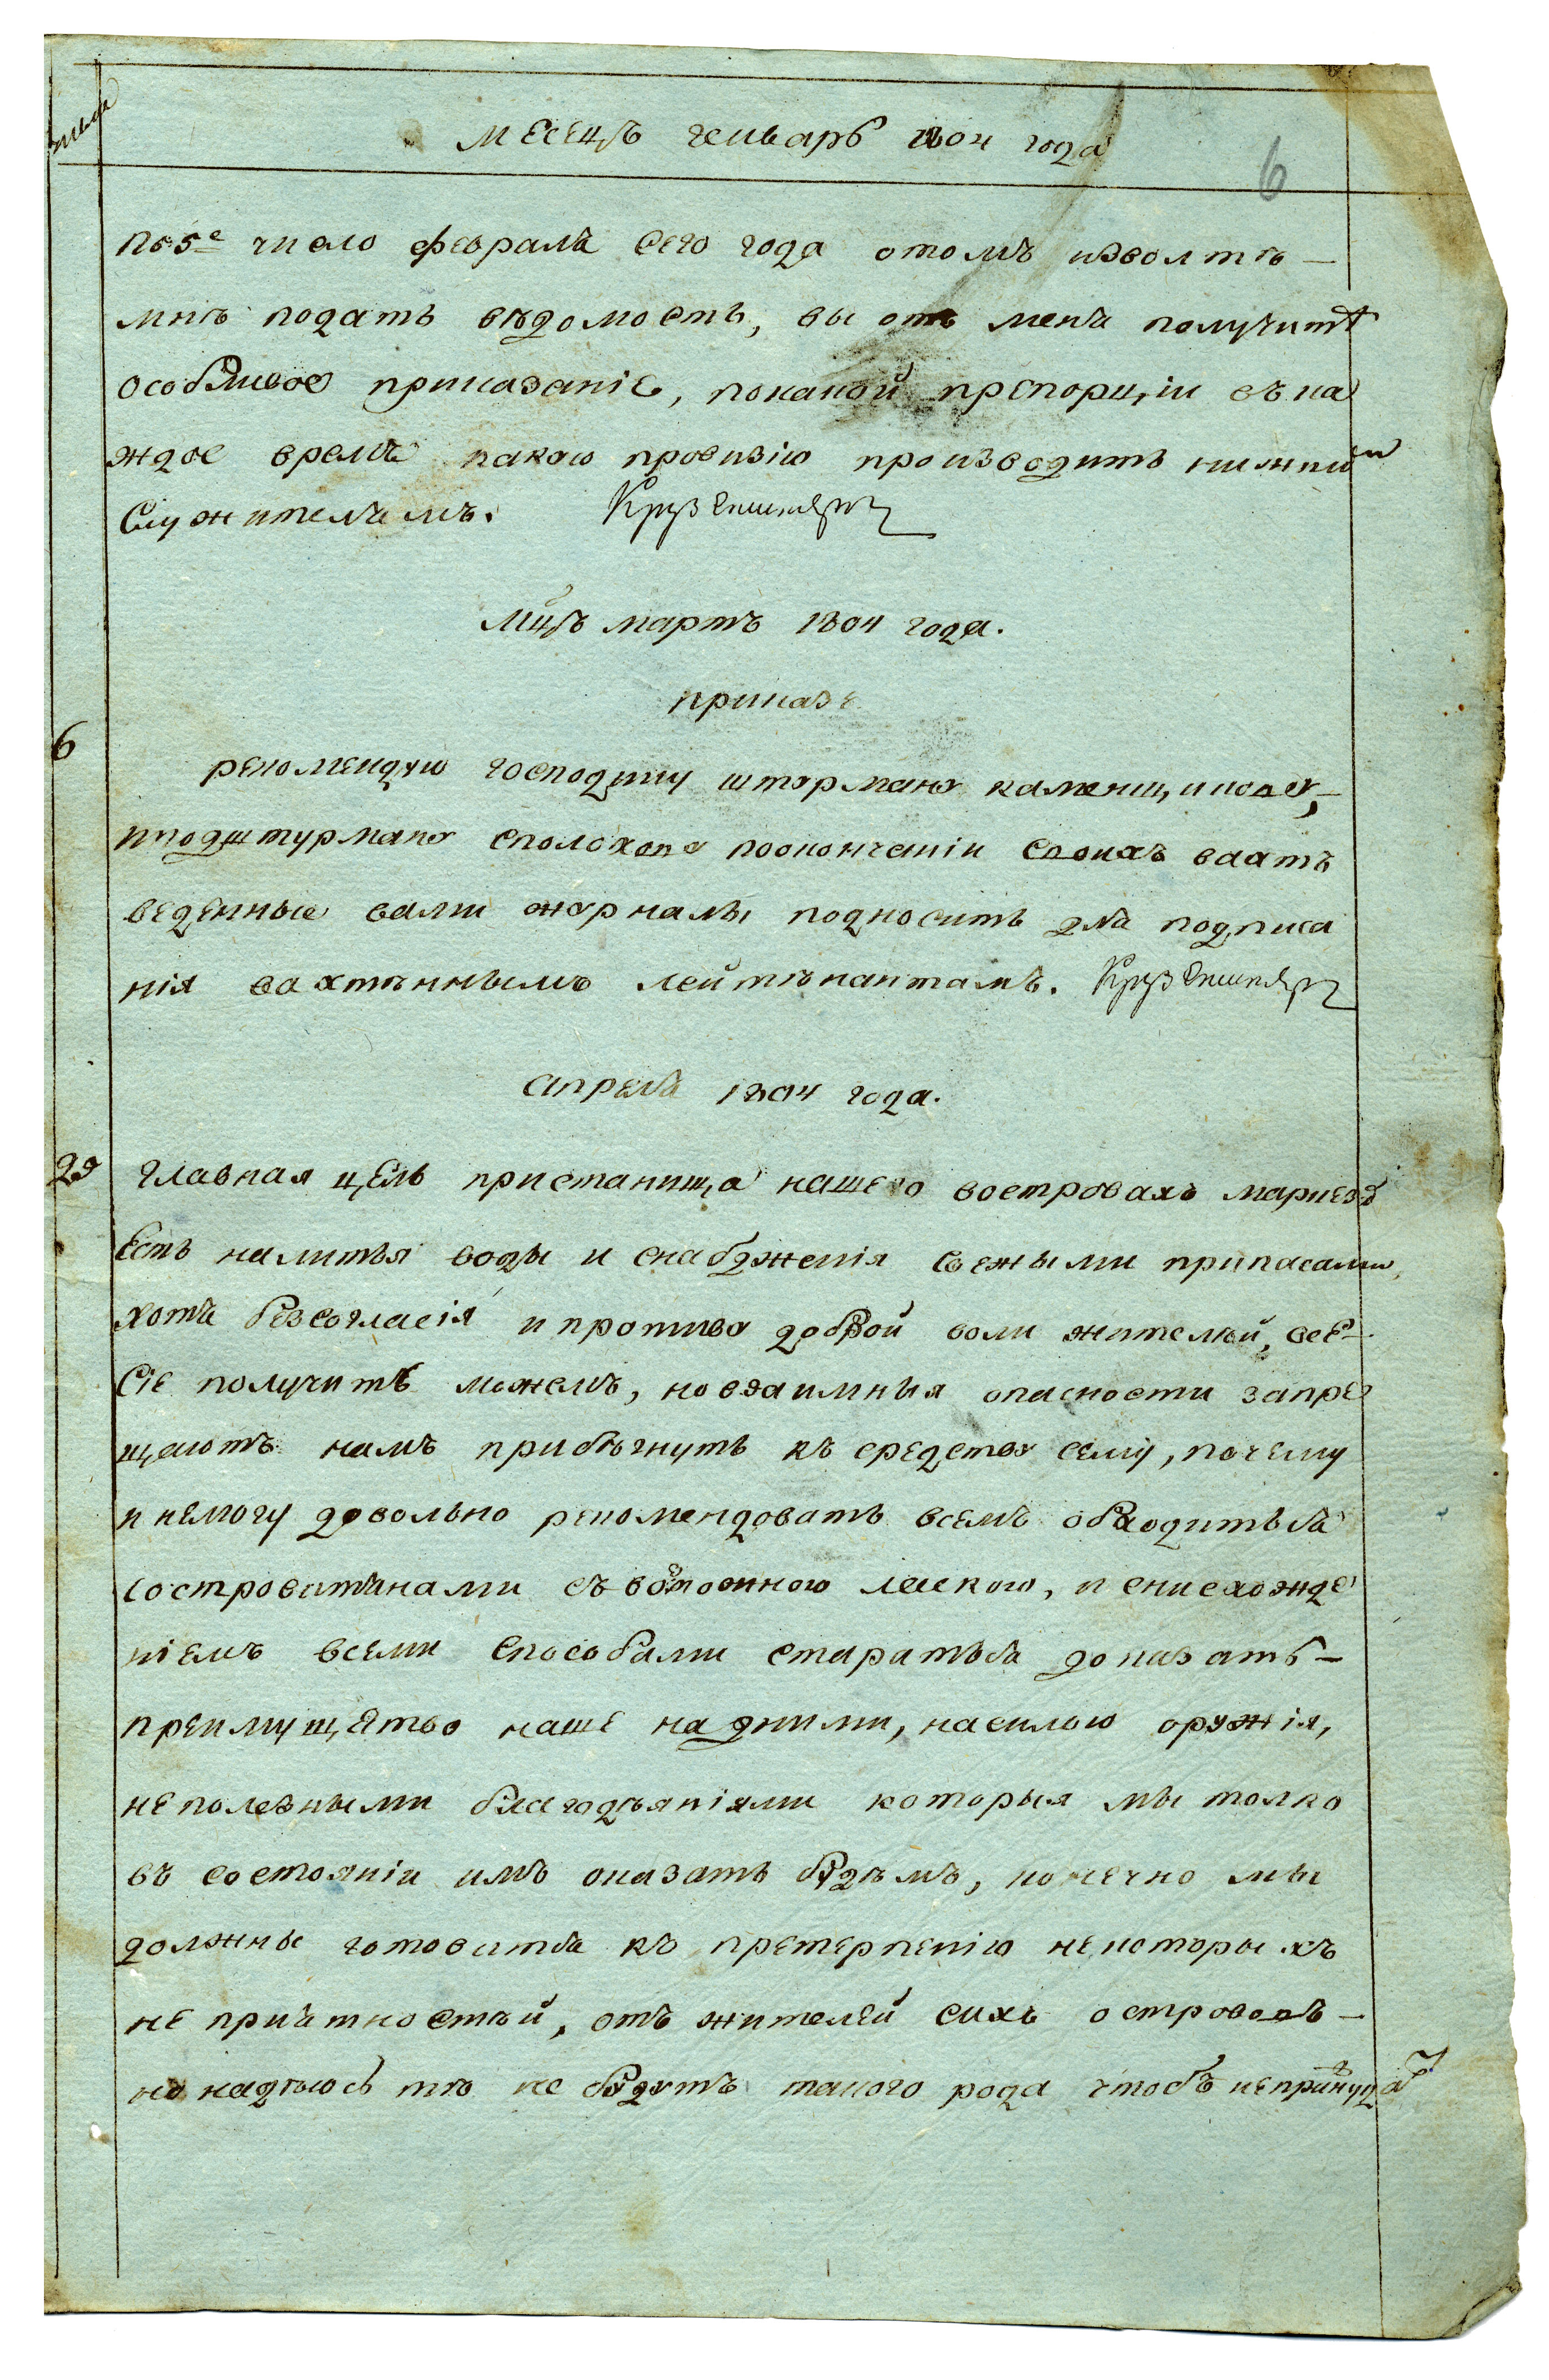 месецъ генварь 1804 года
6
по 5е число февраля сего года отомъ изволтѣ —
мнѣ подать вѣдомость, вы отъ меня получитѣ
особливое приказаніе, покакой препорціи въ ка
ждое время какою провизію производить нижнимъ
служителямъ. Крузенштернъ
Мцъ мартъ 1804 года.
приказъ
6
рекомендую господину штюрману каменщикову,
иподштурману сполохову поокончаніи своихъ вахтъ
веденные вами журналы подносить для подписа
нія вахтѣннымъ лейтѣнантамъ. Крузенштернъ
апрель 1804 года.
29
главная цель пристанища нашего востровахъ маркезъ
есть налитья воды и снабдженія свежыми припасами,
хотя безсогласія и противу доброй воли жителѣй, все —
сіе получить можемъ, новзаимныя опасности запре
щаютъ намъ прибѣгнуть къ средству сему, почему
и немогу довольно рекомендовать всемъ обходиться
состровитянами съ возможною ласкою, и снисхожде
ніемъ всеми способами стараться доказать —
преимущество наше надними, насилою оружія,
неполезными благодѣяніями которыя мы толко
въ состояніи имъ оказать будѣмъ, конечно мы
должны готовится къ претерпенію некоторыхъ
не приятностѣй, отъ жителей сихъ острововъ —
но надѣюсь что не будутъ такого рода чтобъ непринуда